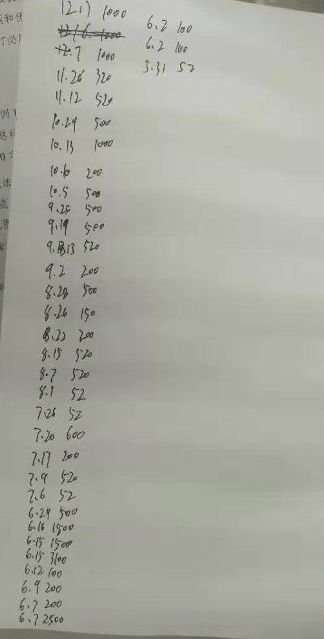 12.17 1000
12.7 1000
11.26 320
11.12 520
10.24 500
10.13 1000
10.6 200
10.5 500
9.25 500
9.19 500
9.13 520
9.2 200
8.28 500
8.26 150
8.22 200
8.15 520
8.7 520
8.1 52
7.26 52
7.20 600
7.17 200
7.9 520
7.6 52
6.24 500
6.16 1500
6.15 1500
6.15 3100
6.12 100
6.9 200
6.7 200
6.7 2500
6.2 100
6.2 100
3.31 52